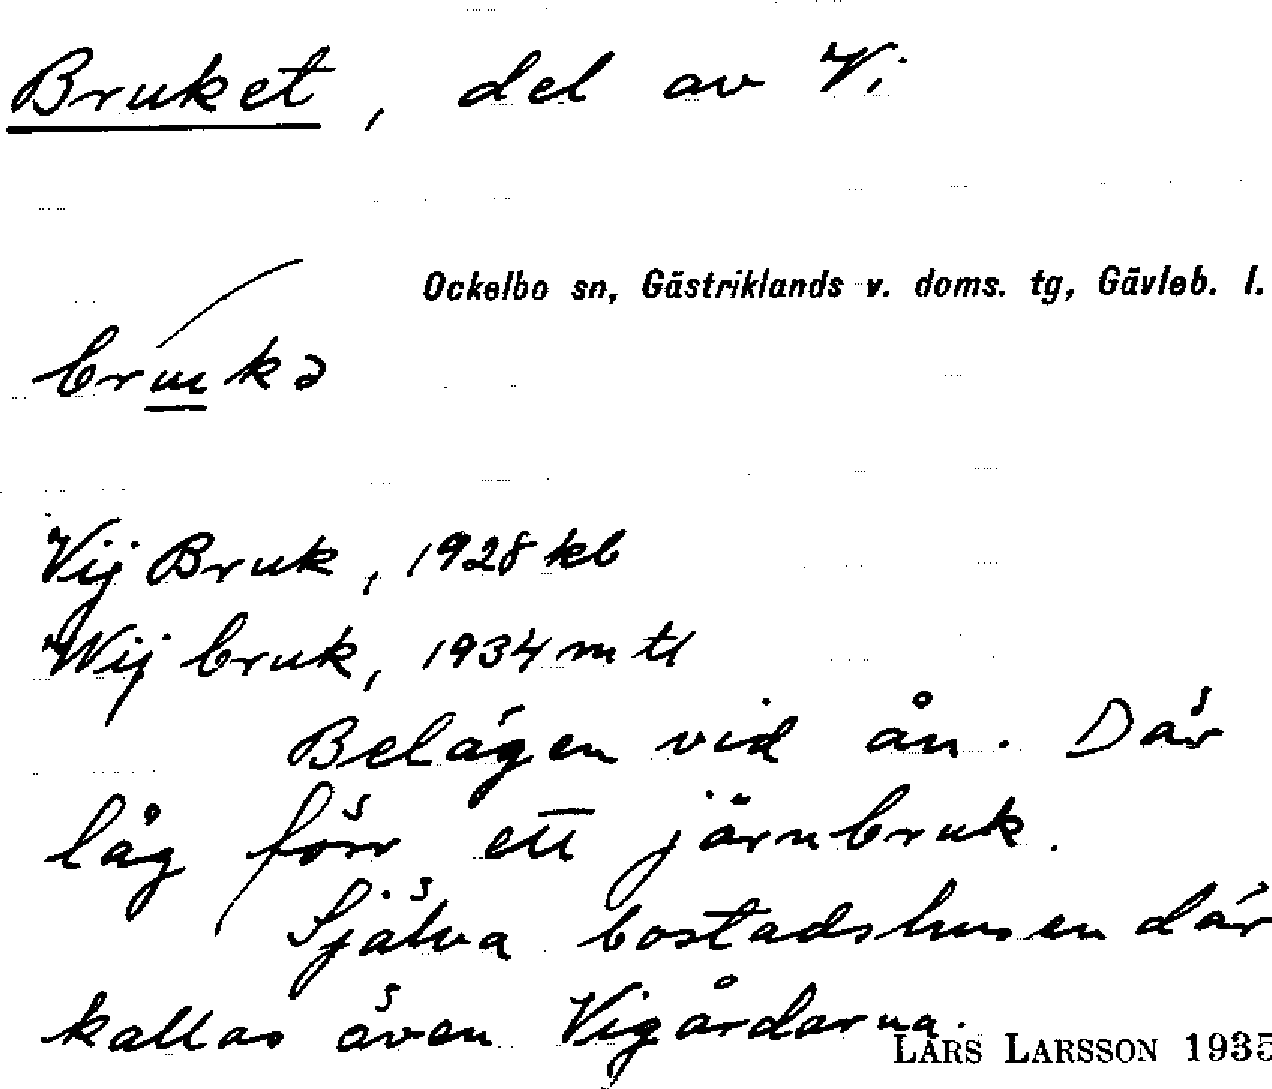 Bruket, del av Vi
Ockelbo sn, Gästriklands v. doms. tg, Gävleb. l.
brukə
Vij Bruk, 1928 kb
Wij bruk, 1934 mtl
Belägen vid ån. Där
låg förr ett järnbruk.
Själva bostadshusen där
kallas även Vigårdarna.
LARS LARSSON 1935